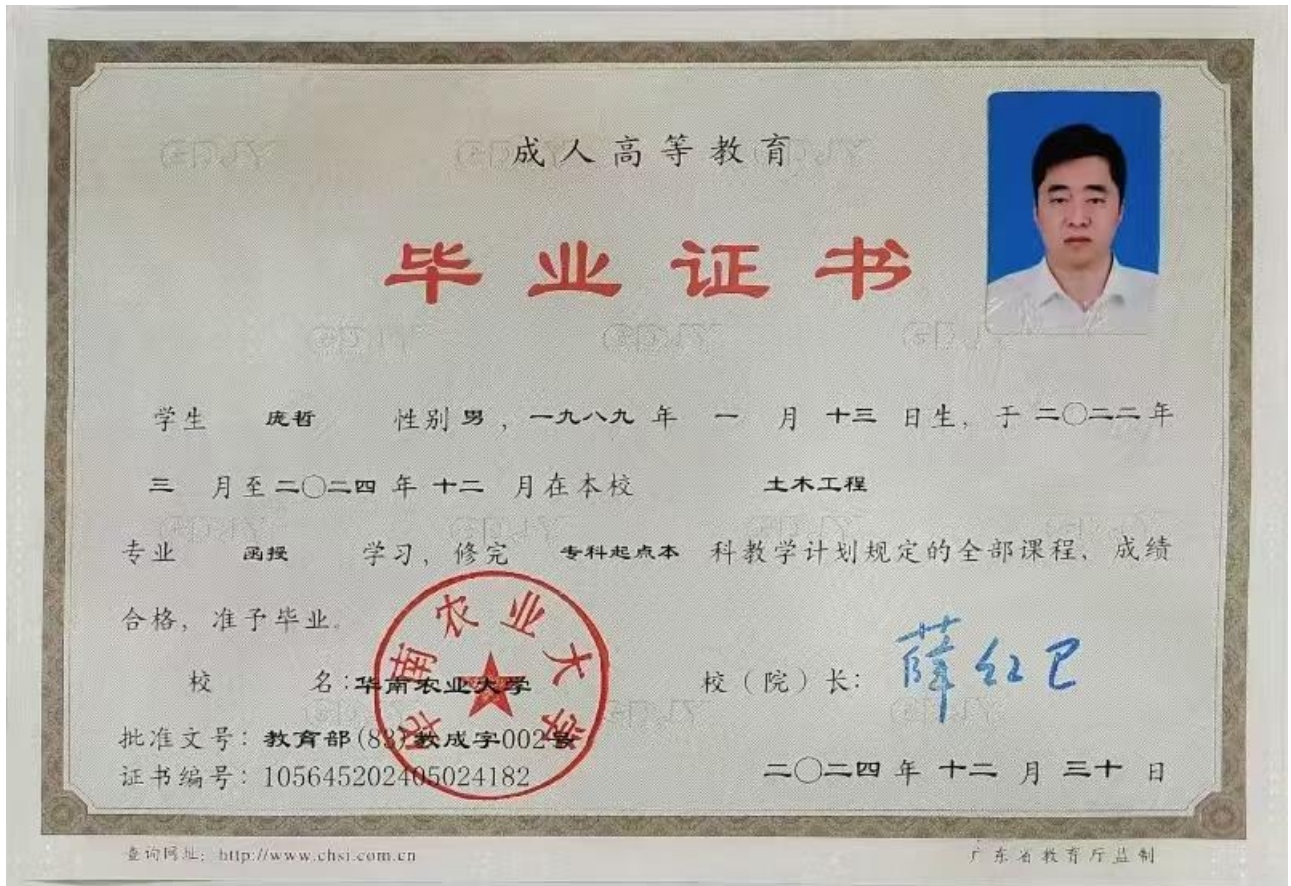 成人高等教育
毕业证书
学生 庞哲 性别 男，一九八九 年 一 月 十三 日生，于 二〇二二 年
三 月至 二〇二四 年 十二 月在本校 土木工程
专业 函授 学习，修完 专科起点本 科教学计划规定的全部课程，成绩
合格，准予毕业。
华南农业大学
校 名：华南农业大学 校（院）长：薛红卫
批准文号：教育部(83)教成字002号
证书编号：105645202405024182 二〇二四 年 十二 月 三十 日
查询网址：http://www.chsi.com.cn 广东省教育厅监制